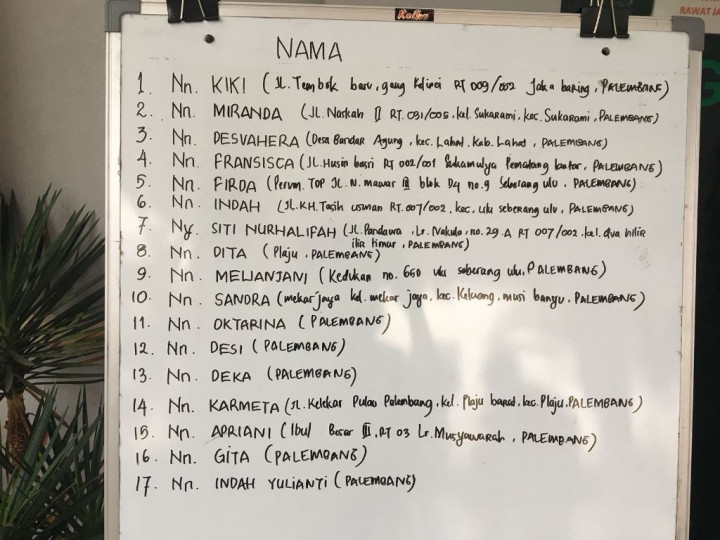 RAWAT JA
NAMA
1. Nn. KIKI (Jl. Tembok baru, gang Kdinci RT 009/002 Jaka baring, PALEMBANG)
2. Nn. MIRANDA (JL. Naskah II RT. 031/005, kel. Sukarami, kec. Sukarami, PALEMBANG)
3. Nn. DESVAHERA (Desa Bandar Agung, kec. Lahat. Kab. Lahat, PALEMBANG)
4. Nn. FRANSISCA (JL. Husin basri RT 002/001 Sukamulya Pematang, PALEMBANG)
5. Nn. FIRDA (Perum. TOP JL. N. mawar III blok D4 no.9 Seberang ulu. PALEMBANG)
6. Nn. INDAH (JL. KH. usman RT. 007/002, kec, ulu seberang ulu, PALEMBANG)
7. Ny. SITI NURHALIFAH (JL. Pandawa, Lr. Nakula, no. 29. A RT 007/002. kel. dua hilir
ilir timur, PALEMBANG)
8. Nn. DITA (Plaju, PALEMBANG)
9. Nn. MELIANJANI (Kedukan no. 650 ulu seberang ulu, PALEMBANG)
10. Nn. SANDRA (mekar jaya kel. mekar jaya, kec. Keluang, musi banyu, PALEMBANG)
11. Nn. OKTARINA (PALEMBANG)
12. Nn. DESI (PALEMBANG)
13. Nn. DEKA (PALEMBANG)
14. Nn. KARMETA (JL. Kelekar Pulau Palembang, kel. Plaju barat, kec. Plaju, PALEMBANG)
15. Nn. APRIANI (Ibul Besar III, RT 03 Lr. Musyawarah, PALEMBANG)
16. Nn. GITA (PALEMBANG)
17. Nn. INDAH YULIANTI (PALEMBANG)